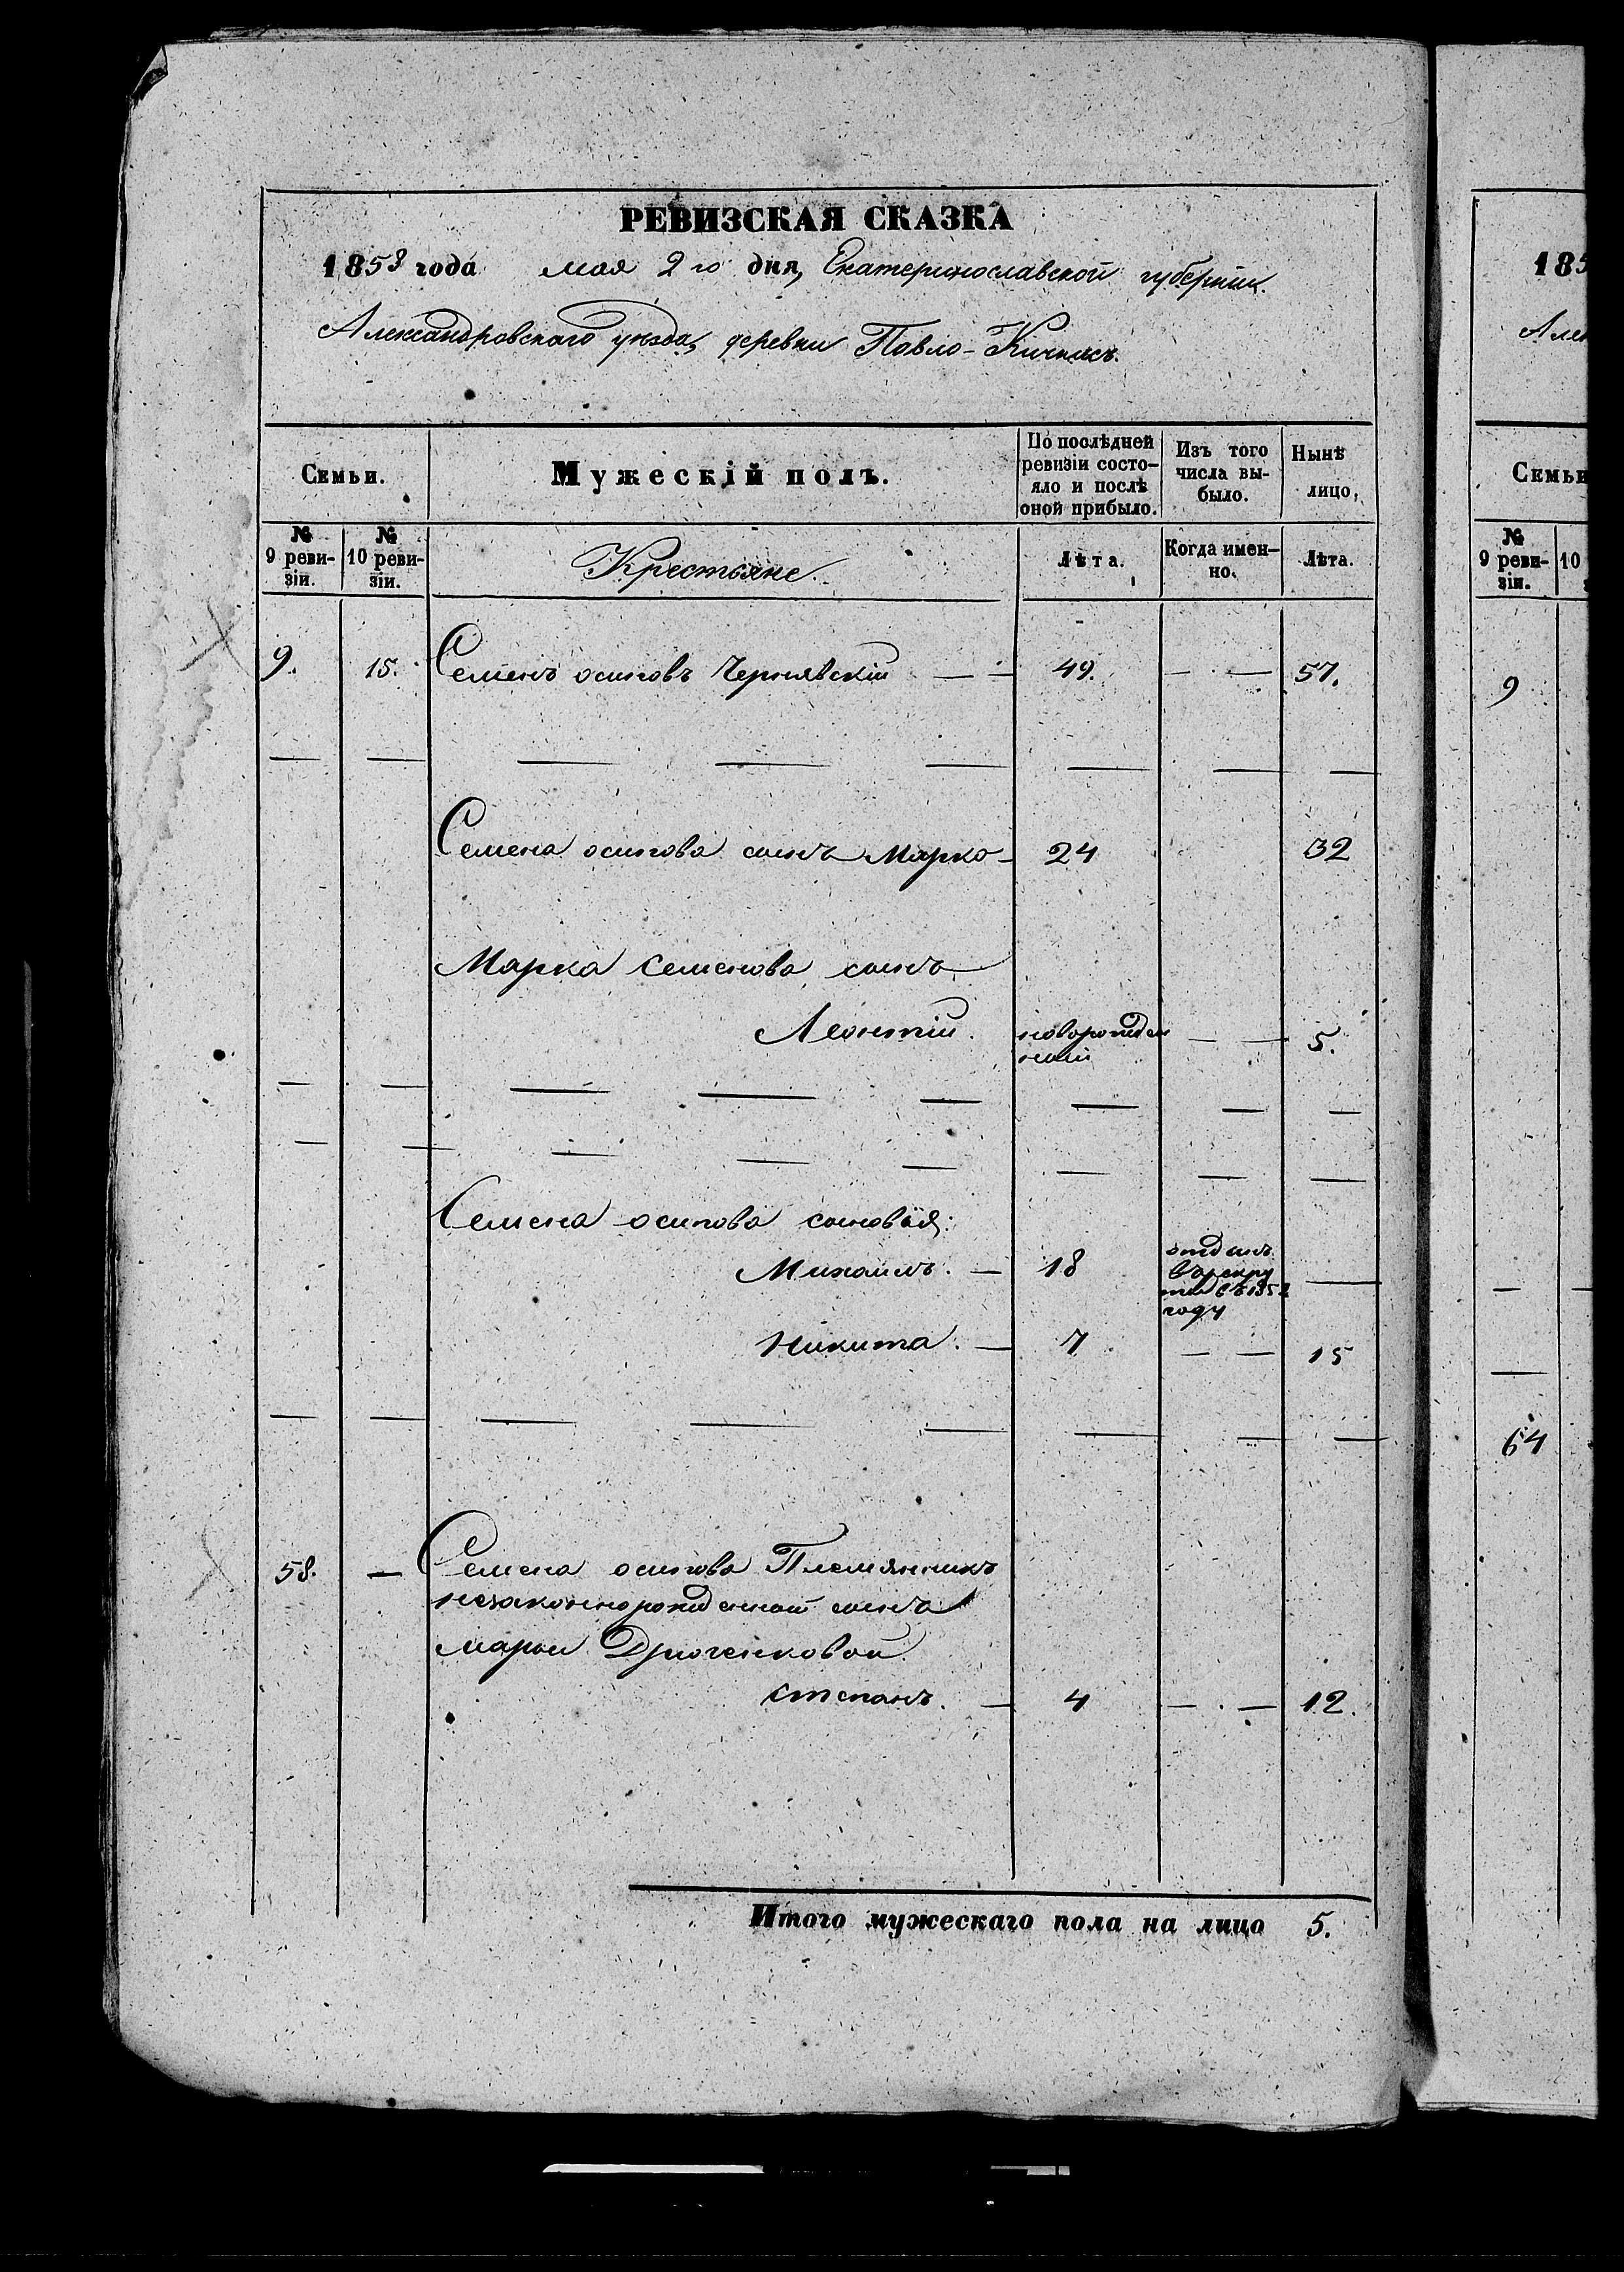 РЕВИЗСКАЯ СКАЗКА
1858 года мая 2го дня, Екатеринославской губерніи.
Александровскаго уѣзда, деревни Павло-Кичкасъ.
Семьи.
Мужескій полъ.
По послѣдней ревизіи состо-
яло и послѣ
оной прибыло.
Изъ того
числа вы-
было.
Нынѣ
лицо,
№
9 реви-
зіи.
№
10 реви-
зіи.
Крестьяне.
Лѣта.
Когда имен-
но.
Лѣта.
9. 15. Семенъ осиповъ Чернявскій — — 49. — — 57.
Семена осипова сынъ Марко — 24 32
Марка Семенова сынъ
Леонтій. новорожден
ный — — 5.
Семена осипова сыновья:
Михаилъ. — 18 отданъ
въ рекру
ты въ 1852
году —
Никита. — 7 — — 15
58. — Семена осипова Племянникъ
незаконнорожденной сынъ
марьи
Степанъ. — 4 — — 12.
Итого мужескаго пола на лицо 5.
185
Але
Семьи
№
9 реви-
зіи.
10
9
64